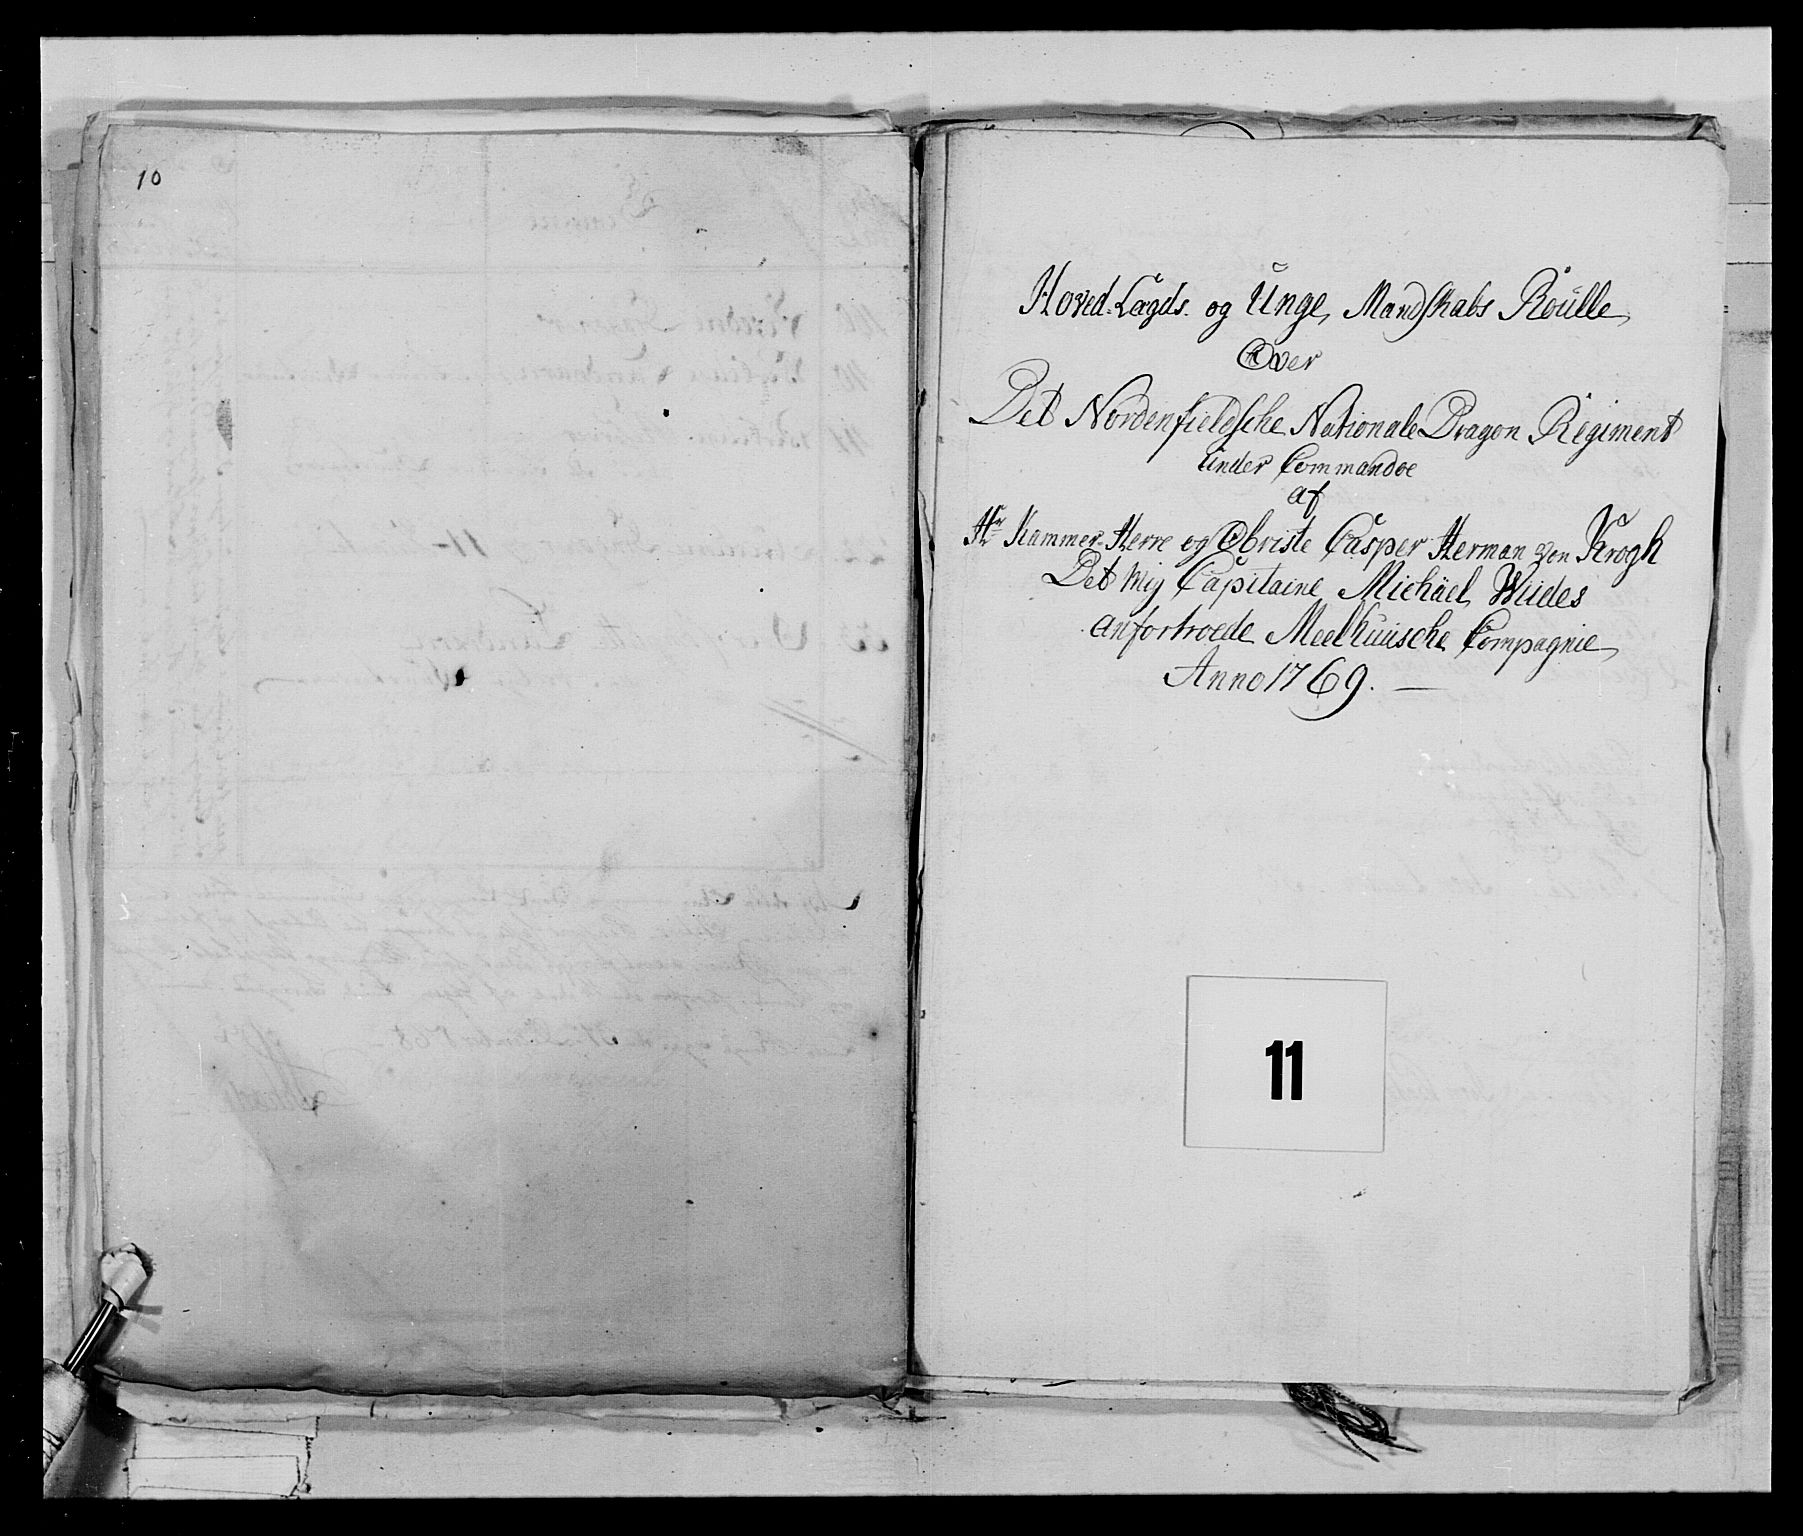 10
Hoved-Lægds. og Unge, Mandskabs Roulle,
Over
Det Nordenfieldsche Nationale Dragon Regiment
under Commandoe
af
Hr. Kammer-Herre og Obriste Casper Herman von Krogh
Det mij Capitaine Michäel Wiides
anfortroede Meelhuusche Compagnie,
Anno 1769. —
11